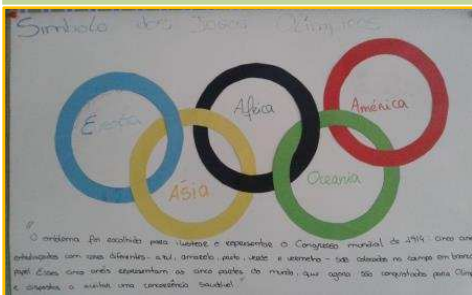 Símbolo dos Jogos Olímpicos
Europa
África
América
Ásia
Oceania
"O emblema foi escolhido para ilustrar e representar o Congresso mundial de 1914: cinco anéis
entrelaçados com cores diferentes - azul, amarelo, preto, verde e vermelho - são colocados no campo em branco
papel. Esses cinco anéis representam as cinco partes do mundo, que agora são conquistados para
e dispostos a aceitar uma concorrência saudável"